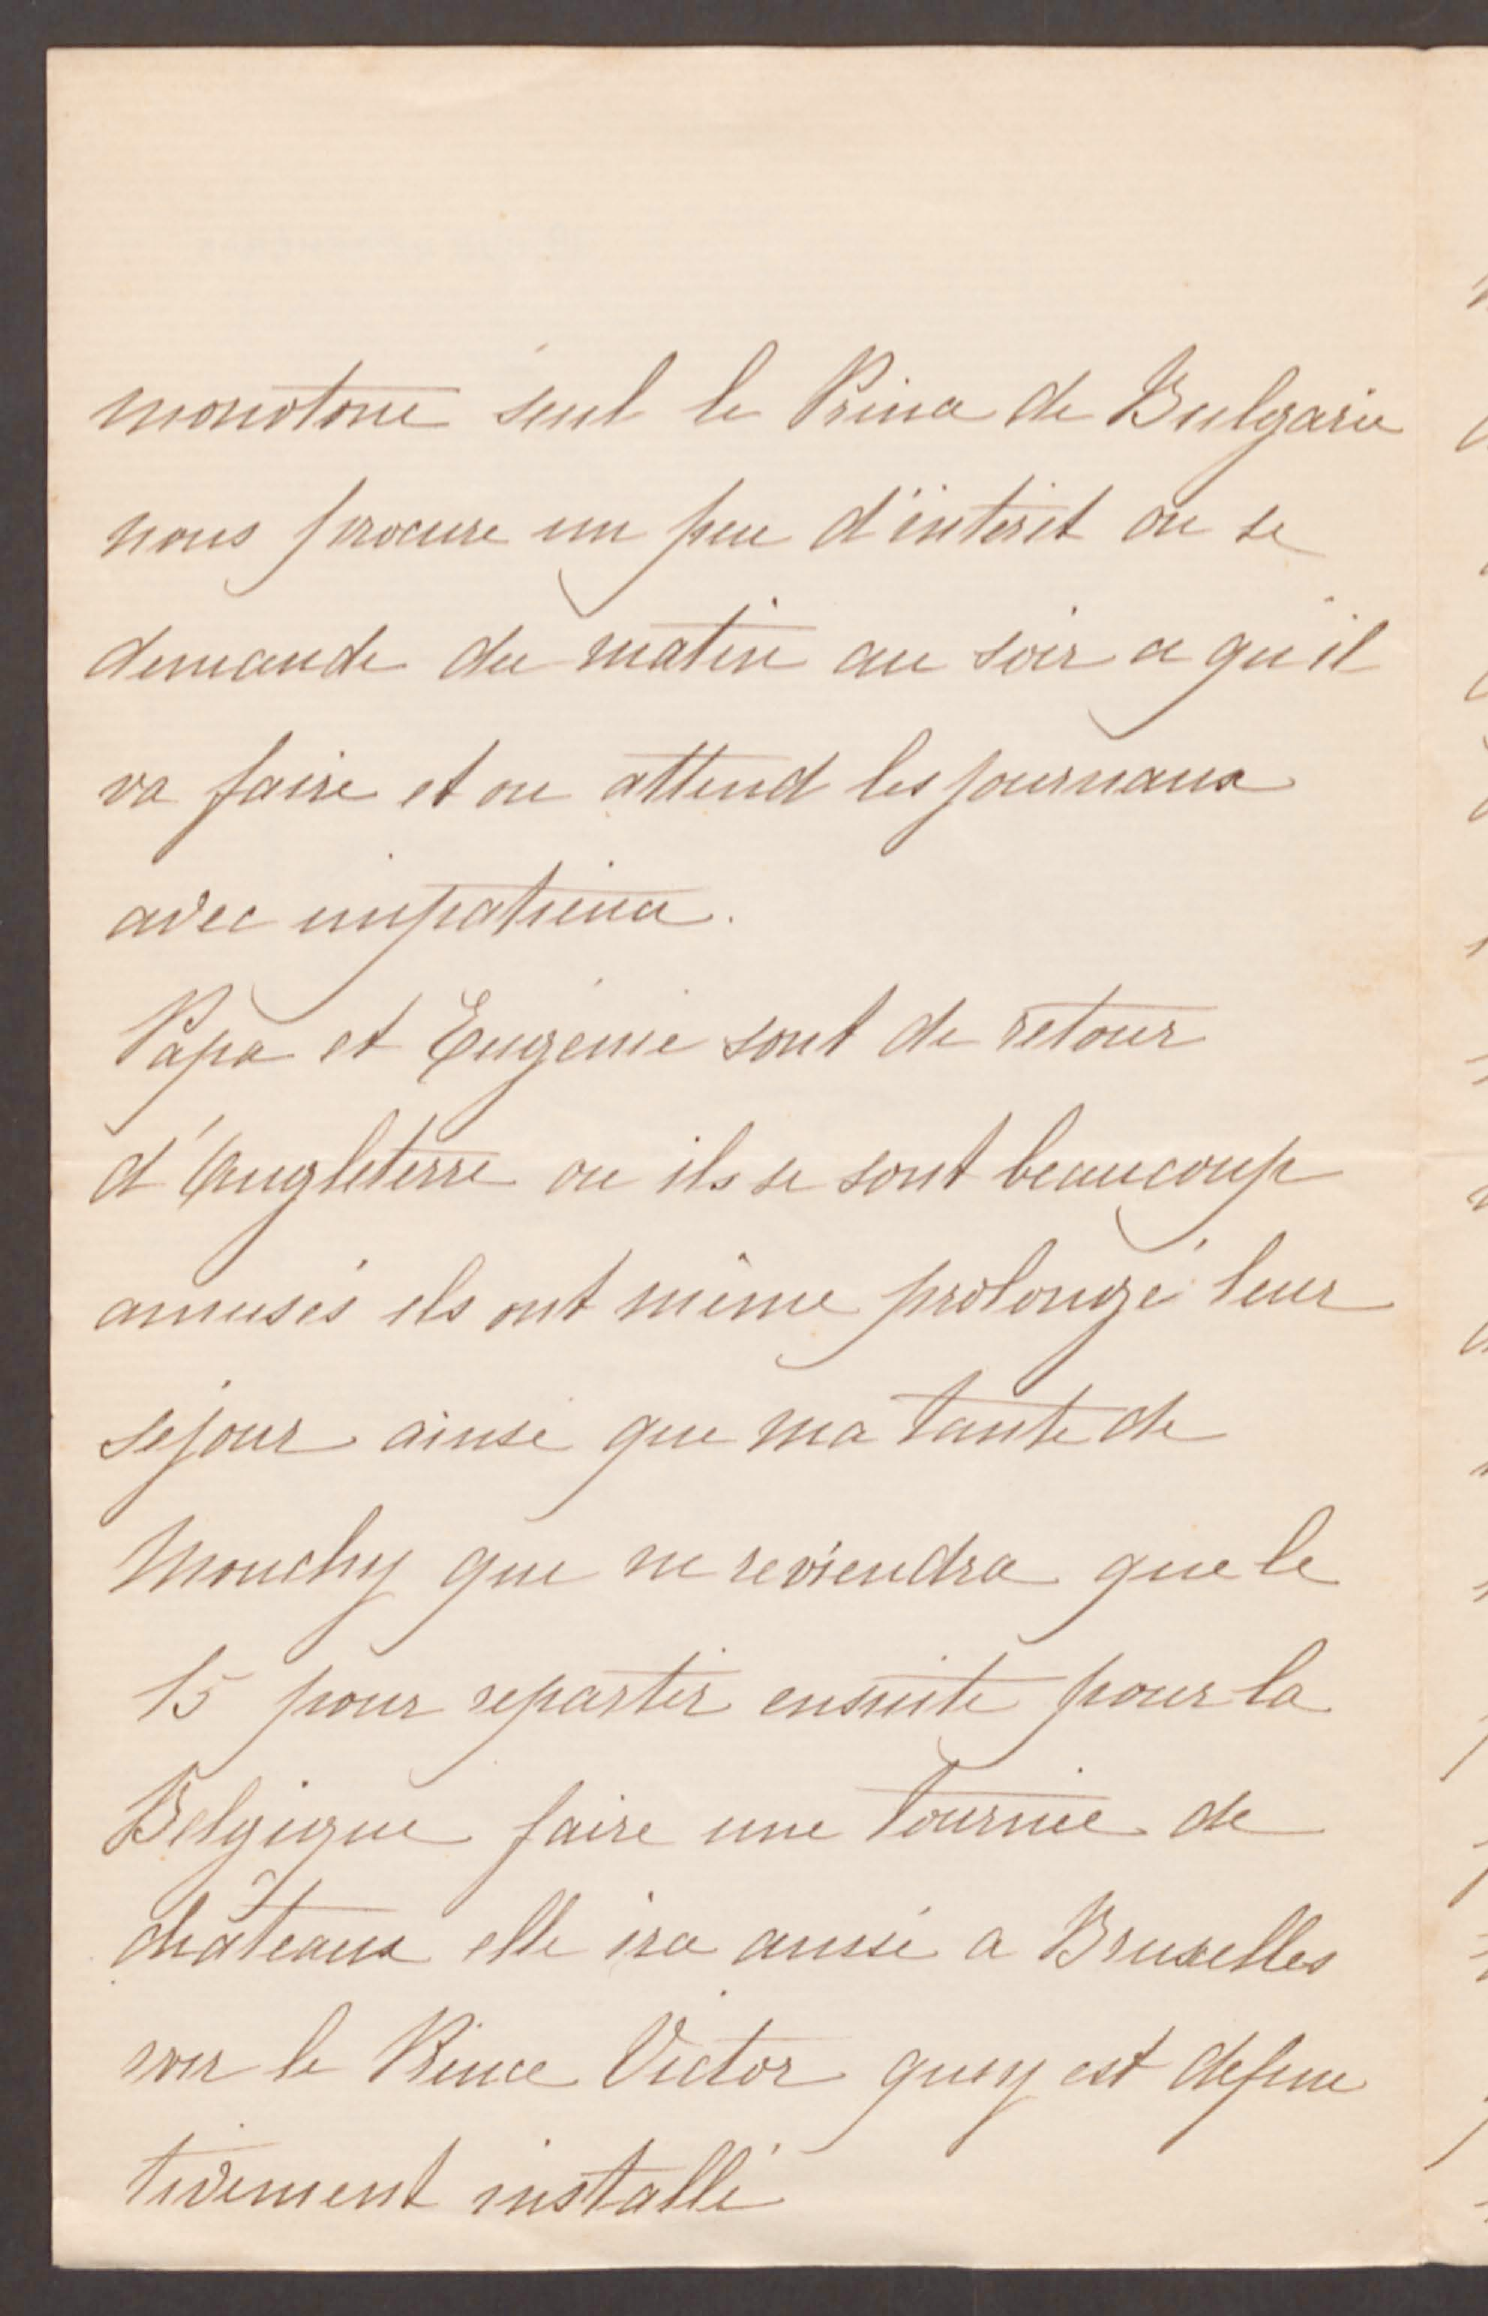 monotone seul le Prince de Bulgarie
nous procure un peu d'intérêt on se
demande du matin au soir ce qu'il
va faire et on attend les journaux
avec impatience.
Papa et Eugénie sont de retour
d'Angleterre ou ils se sont beaucoup
amusés ils ont même prolongé leur
séjour ainsi que ma tante de
Mouchy qui ne reviendra que le
15 pour repartir ensuite pour la
Belgique faire une tournée de
châteaux elle ira aussi a Bruxelles
voir le Prince Victor qui y est defini
tivement installé